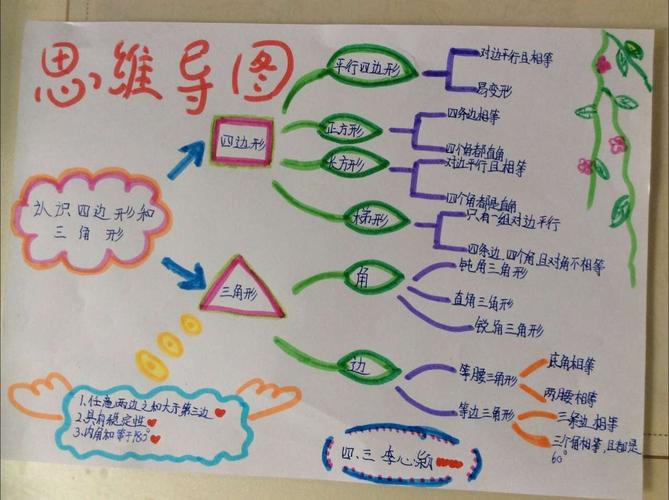 思维导图
认识四边形和
三角形
四边形
平行四边形
对边平行且相等
易变形
正方形
四条边相等
四个角都直角
长方形
对边平行,且相等
四个角都是直角
梯形
只有一组对边平行
四条边、四个角,且对角不相等
三角形
角
钝角三角形
直角三角形
锐角三角形
边
等腰三角形
底角相等
两腰相等
等边三角形
三条边相等
三个角相等,且都是
60°
1.任意两边之和大于第三边
2.具有稳定性
3.内角和等于180°
四、三 李心颖